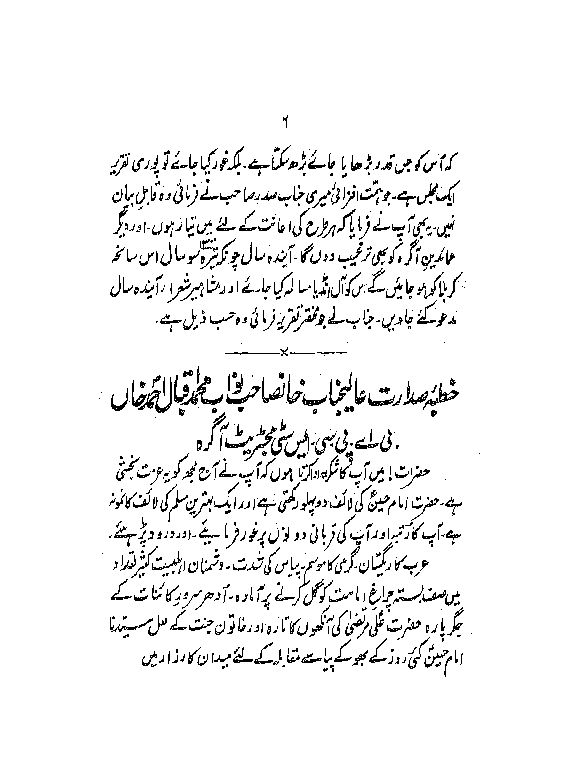 ۶
کہ اُس کو جس قدر بڑھایا جائے بڑھ سکتا ہے۔ بلکہ غور کیا جائے تو پوری تقریر
ایک مجلس ہے۔ جو ہمّت افزائی میری جناب صدر صاحب نے فرمائی وہ قابلِ بیان
نہیں۔ یہ بھی آپ نے فرمایا کہ ہر طرح کی اعانت کے لئے میں تیار ہوں۔ اور دیگر
عمائدینِ آگرہ کو بھی ترغیب دوں گا۔ آیندہ سال چونکہ تیرہ سو سال اس سانحہ
کربلا کو ہو جائیں گے اس کو آل انڈیا مسالمہ کیا جائے اور مشاہیر شعراء آیندہ سال
مدعو کئے جاویں۔ جناب نے جو مختصر تقریر فرمائی وہ حسب ذیل ہے۔
خطبۂ صدارت عالیجناب خانصاحب نواب محمد اقبال احمد خاں
بی۔اے۔ پی۔سی۔ایس سٹی مجسٹریٹ آگرہ
حضرات! میں آپ کا شکریہ ادا کرتا ہوں کہ آپ نے آج مجھ کو یہ عزت بخشی
ہے۔ حضرت امام حسینؑ کی لائف دو پہلو رکھتی ہے اور ایک بہترین مسلم کی لائف کا نمونہ
ہے۔ آپ کا رتبہ اور آپ کی قربانی دونوں پر غور فرمایئے۔ اور درود پڑھیئے۔
عرب کا ریگستان۔ گرمی کا موسم۔ پیاس کی شدت۔ دشمنان اہلبیت کثیر تعداد
میں صف بستہ چراغِ امامت کو گل کرنے پر آمادہ۔ اُدھر سرورِ کائنات کے
جگر پارہ حضرت علی مرتضیٰؑ کی آنکھوں کا تارہ اور خاتون جنت کے لعل سیدنا
امام حسینؑ کئی روز کے بھوکے پیاسے مقابلہ کے لئے میدان کارزار میں